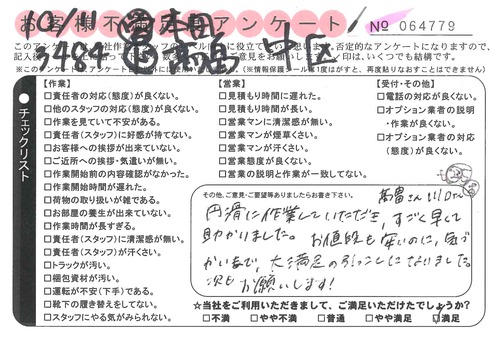 お客様不満足度アンケート
No 064779
10/11
5484
中区
チェックリスト
【作業】
□責任者の対応(態度)が良くない。
□他のスタッフの対応(態度)が良くない。
□作業を見ていて不安がある。
□責任者(スタッフ)に好感が持てない。
□お客様への挨拶が出来ていない。
□ご近所への挨拶・気遣いが無い。
□作業開始前の内容確認がなかった。
□作業開始時間が遅れた。
□荷物の取り扱いが雑である。
□お部屋の養生が出来ていない。
□作業時間が長すぎる。
□責任者(スタッフ)に清潔感が無い。
□責任者(スタッフ)が汗くさい。
□トラックが汚い。
□梱包資材が汚い。
□運転が不安(下手)である。
□靴下の履き替えをしてない。
□スタッフにやる気がみられない。
【営業】
□見積もり時間に遅れた。
□見積もり時間が長い。
□営業マンに清潔感が無い。
□営業マンが煙草くさい。
□営業マンが汗くさい。
□営業態度が良くない。
□営業の説明と作業が一致してない。
【受付・その他】
□電話の対応が良くない。
□オプション業者の説明
・作業が良くない。
□オプション業者の対応
(態度)が良くない。
その他、ご意見・ご要望等ありましたらお書き下さい。
円滑に作業していただき、すごく早くて
助かりました。お値段も安いのに、気づ
かいまで、大満足の引っこしになりました。
次もお願いします!
☆当社をご利用いただきまして、ご満足いただけたでしょうか?
□不満 □やや不満 □普通 □やや満足 ☑満足